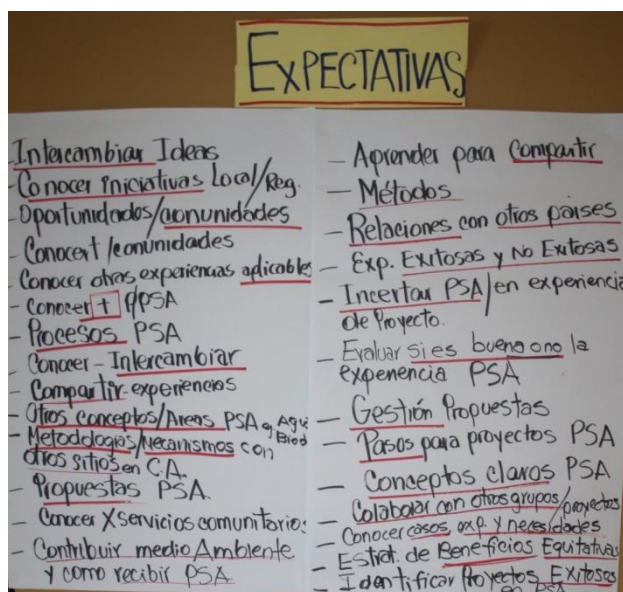 EXPECTATIVAS
- Intercambiar Ideas
- Conocer iniciativas Local/Reg.
- Oportunidades/comunidades
- Conocer + /comunidades
- Conocer otras experiencias aplicables
- Conocer + PSA
- Procesos PSA
- Conocer - Intercambiar
- Compartir experiencias
- Otros conceptos/Areas PSA Agu
Biod
- Metodologías/Mecanismos con
otros sitios en C.A.
- Propuestas PSA.
- Conocer X servicios comunitarios
- Contribuir medio Ambiente
y como recibir PSA
- Aprender para Compartir
- Métodos
- Relaciones con otros paises
- Exp. Exitosas y No Exitosas
- Incertar PSA/en experiencia
de Proyecto.
- Evaluar si es bueno o no la
experiencia PSA
- Gestión Propuestas
- Pasos para proyectos PSA
- Conceptos claros PSA
- Colaborar con otros grupos/proyectos
- Conocer casos, exp. y necesidades
- Estrat. de Beneficios Equitativas
- Identificar Proyectos Exitosos
en PSA